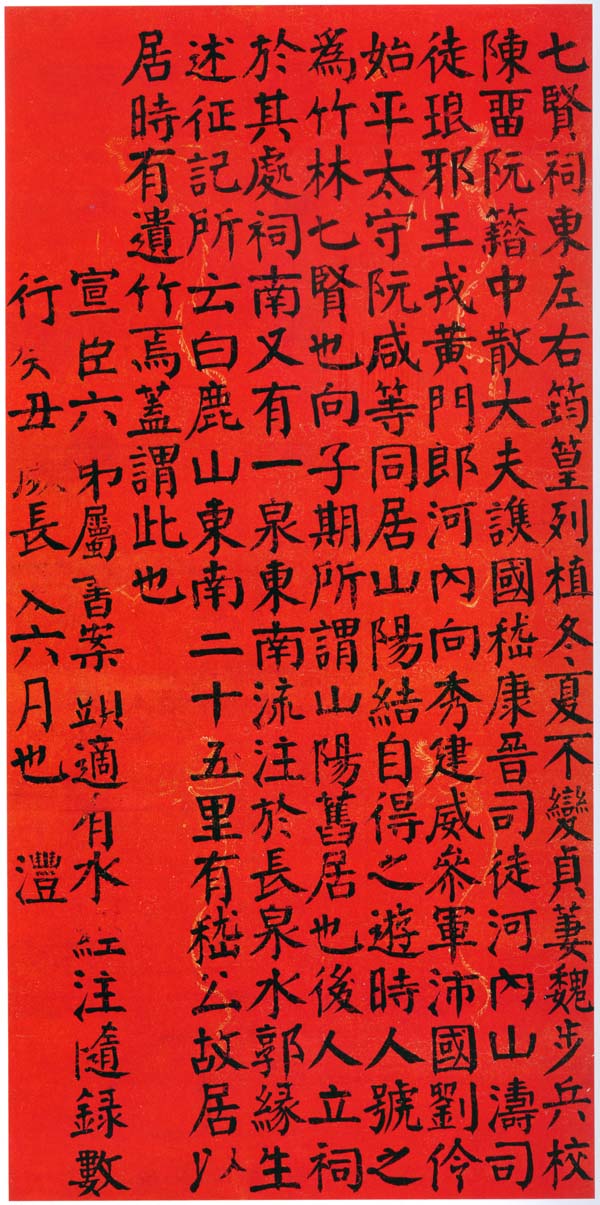 七賢祠東左右筠篁列植冬夏不變貞萋魏步兵校
陳畱阮籍中散大夫譙國嵇康晉司徒河內山濤司
徒琅邪王戎黃門郎河內向秀建威參軍沛國劉伶
始平太守阮咸等同居山陽結自得之遊時人號之
爲竹林七賢也向子期所謂山陽舊居也後人立祠
於其處祠南又有一泉東南流注於長泉水郭緣生
述征記所云白鹿山東南二十五里有嵇公故居以
居時有遺竹焉蓋謂此也
宣臣六弟屬書案頭適有水經注隨錄數
行癸丑歲長入六月也 灃